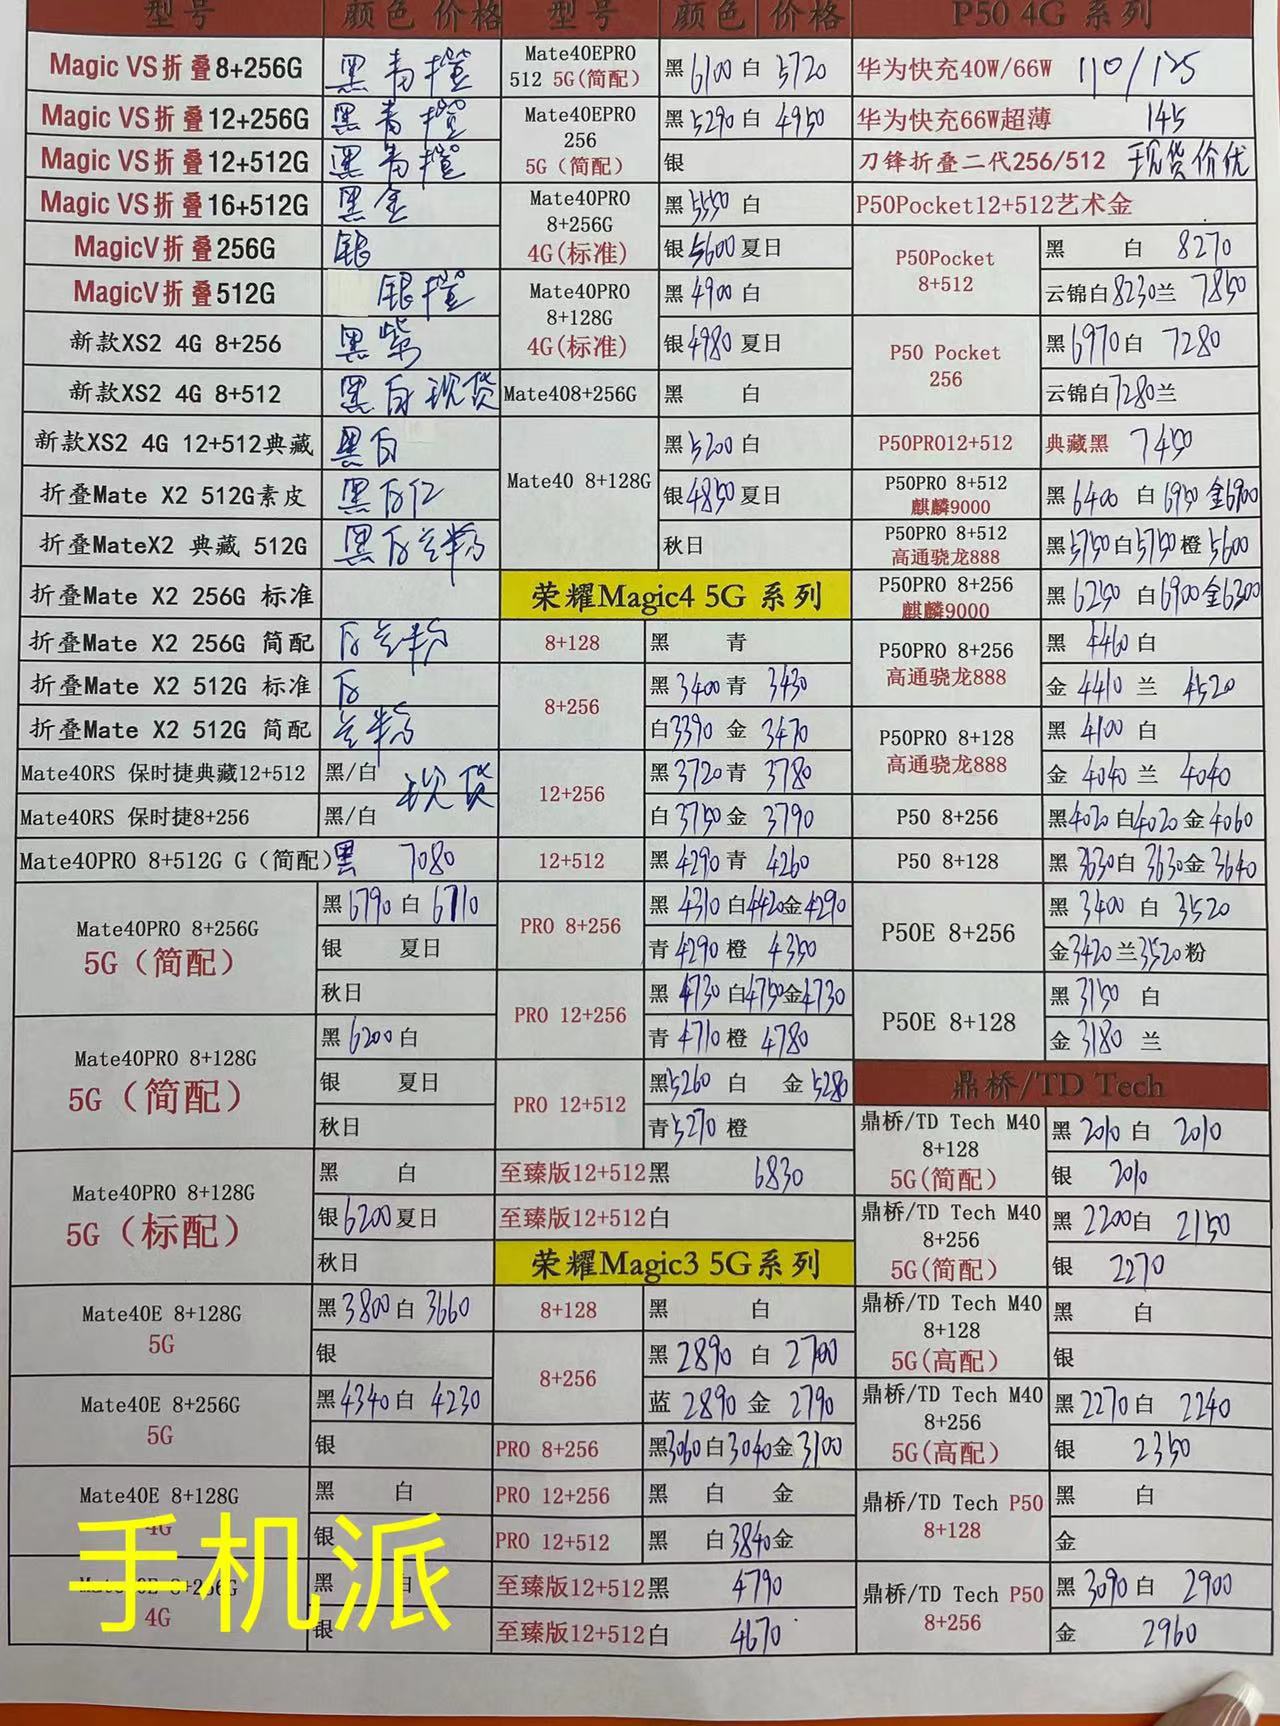 型号 颜色 价格
Magic VS折叠8+256G 黑 青 橙
Magic VS折叠12+256G 黑 青 橙
Magic VS折叠12+512G 黑 青 橙
Magic VS折叠16+512G 黑 金
MagicV折叠256G 银
MagicV折叠512G 银 橙
新款XS2 4G 8+256 黑 紫
新款XS2 4G 8+512 黑 白 现货
新款XS2 4G 12+512典藏 黑 白
折叠Mate X2 512G素皮 黑 白
折叠MateX2 典藏 512G 黑 白 兰 粉
折叠Mate X2 256G 标准
折叠Mate X2 256G 简配 白 兰 粉
折叠Mate X2 512G 标准 白
折叠Mate X2 512G 简配 兰 粉
Mate40RS 保时捷典藏12+512 黑/白 现货
Mate40RS 保时捷8+256 黑/白
Mate40PRO 8+512G G（简配） 黑 7080
Mate40PRO 8+256G
5G（简配）
黑6790 白 6710
银 夏日
秋日
Mate40PRO 8+128G
5G（简配）
黑 6200 白
银 夏日
秋日
Mate40PRO 8+128G
5G（标配）
黑 白
银6200 夏日
秋日
Mate40E 8+128G
5G
黑3800 白 3660
银
Mate40E 8+256G
5G
黑4340 白 4230
银
Mate40E 8+128G
4G
黑 白
银
Mate40E 8+256G
4G
黑 白
银
手机派
型号 颜色 价格
Mate40EPRO
512 5G(简配)
黑 6100 白 5720
Mate40EPRO
256
5G（简配）
黑5290 白 4950
银
Mate40PRO
8+256G
4G(标准)
黑5550 白
银5600 夏日
Mate40PRO
8+128G
4G(标准)
黑4900 白
银4980 夏日
Mate408+256G 黑 白
Mate40 8+128G
黑5200 白
银4850 夏日
秋日
荣耀Magic4 5G 系列
8+128 黑 青
8+256
黑3400 青 3430
白3390 金 3470
12+256
黑3720 青 3780
白3750 金 3790
12+512 黑4290 青 4260
PRO 8+256
黑 4310 白4420 金4290
青4290 橙 4350
PRO 12+256
黑 4730 白4750 金4730
青4710 橙 4780
PRO 12+512
黑5260 白 金5280
青5270 橙
至臻版12+512黑 6830
至臻版12+512白
荣耀Magic3 5G系列
8+128 黑 白
8+256
黑2890 白 2700
蓝 2890 金 2790
PRO 8+256 黑3060 白3040 金3100
PRO 12+256 黑 白 金
PRO 12+512 黑 白3840 金
至臻版12+512黑 4790
至臻版12+512白 4670
P50 4G 系列
华为快充40W/66W 110/125
华为快充66W超薄 145
刀锋折叠二代256/512 现货价优
P50Pocket12+512艺术金
P50Pocket
8+512
黑 白 8270
云锦白8230 兰 7850
P50 Pocket
256
黑6970 白 7280
云锦白7280 兰
P50PRO12+512 典藏黑 7450
P50PRO 8+512
麒麟9000
黑6400 白6950 金6900
P50PRO 8+512
高通骁龙888
黑5750 白5750 橙5600
P50PRO 8+256
麒麟9000
黑6250 白6900 金6300
P50PRO 8+256
高通骁龙888
黑 4460 白
金 4410 兰 4520
P50PRO 8+128
高通骁龙888
黑 4100 白
金 4040 兰 4040
P50 8+256 黑4020 白4020 金4060
P50 8+128 黑3630 白3630 金3640
P50E 8+256
黑 3400 白 3520
金3420 兰3520 粉
P50E 8+128
黑3150 白
金3180 兰
鼎桥/TD Tech
鼎桥/TD Tech M40
8+128
5G(简配)
黑 2010 白 2010
银 2010
鼎桥/TD Tech M40
8+256
5G(简配)
黑 2200 白 2150
银 2270
鼎桥/TD Tech M40
8+128
5G(高配)
黑 白
银
鼎桥/TD Tech M40
8+256
5G(高配)
黑2270 白 2240
银 2350
鼎桥/TD Tech P50
8+128
黑 白
金
鼎桥/TD Tech P50
8+256
黑3090 白 2900
金 2960